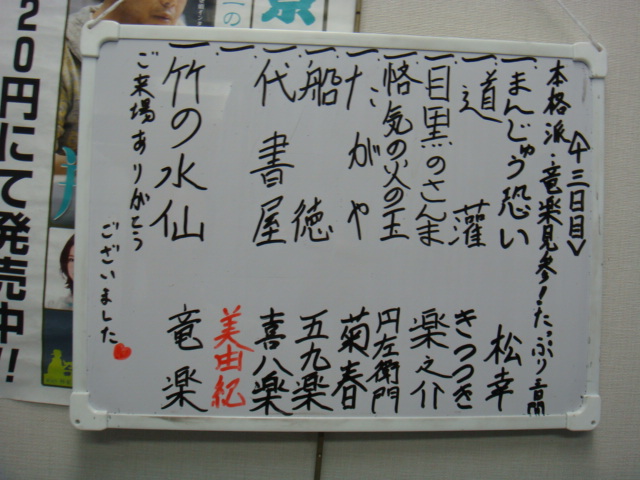 本格派・竜楽見参!たっぷり
<十三日目>
一まんじゅう恐い 松幸
一道灌 きつつき
一目黒のさんま 楽之介
一悋気の火の玉 円左衛門
一たがや 菊春
一船徳 五九楽
一代書屋 喜八楽
一 美由紀
一竹の水仙 竜楽
ご来場ありがとう
ございました
20円にて発売中!!